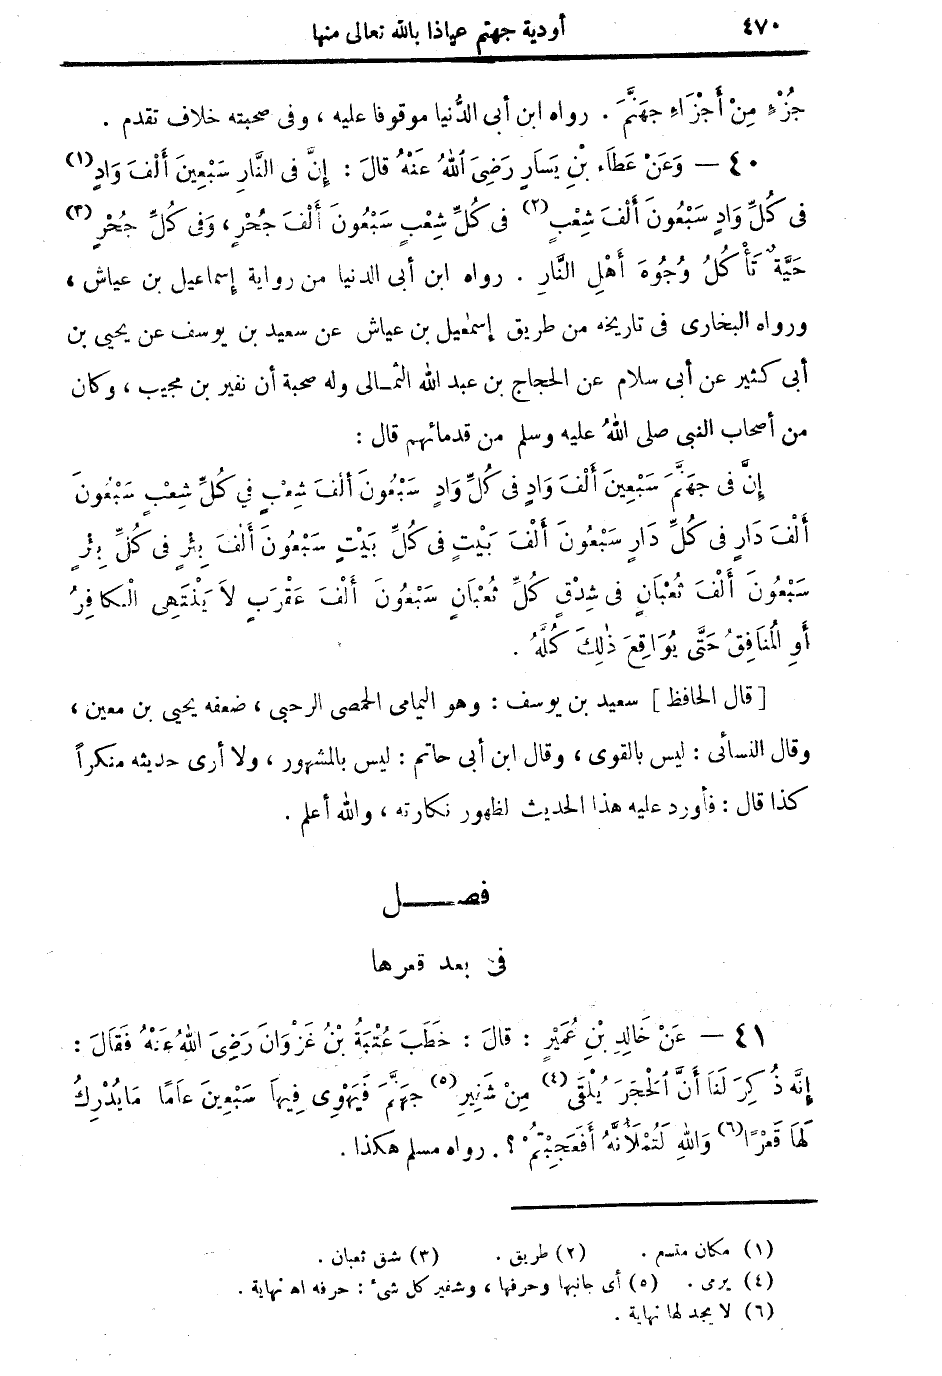 ٤٧٠ أودية جهنم عياذا بالله تعالى منها
جُزْءٍ مِنْ أَجْزَاءِ جَهَنَّمَ . رواه ابن أبى الدُّنيا موقوفا عليه ، وفى صحبته خلاف تقدم .
٤٠ — وَعَنْ عَطَاءِ بْنِ يَسَارٍ رَضِىَ اللهُ عَنْهُ قالَ : إِنَّ فى النَّارِ سَبْعِينَ أَلْفَ وَادٍ (١)
فى كُلِّ وَادٍ سَبْعُونَ أَلْفَ شِعْبٍ (٢) فى كُلِّ شِعْبٍ سَبْعُونَ أَلْفَ جُحْرٍ ، وَفى كُلِّ جُحْرٍ (٣)
حَيَّةٌ تَأْكُلُ وُجُوهَ أَهْلِ النَّارِ . رواه ابن أبى الدنيا من رواية إسماعيل بن عياش ،
ورواه البخارى فى تاريخه من طريق إسمٰعيل بن عياش عن سعيد بن يوسف عن يحيى بن
أبى كثير عن أبى سلام عن الحجاج بن عبد الله الثمـالى وله صحبة أن نفير بن مجيب ، وكان
من أصحاب النبى صلى اللهُ عليه وسلم من قدمائهم قال :
إِنَّ فى جَهَنَّمَ سَبْعِينَ أَلْفَ وَادٍ فى كُلِّ وَادٍ سَبْعُونَ أَلْفَ شِعْبٍ فِي كُلِّ شِعْبٍ سَبْعُونَ
أَلْفَ دَارٍ فى كُلِّ دَارٍ سَبْعُونَ أَلْفَ بَيْتٍ فى كُلِّ بَيْتٍ سَبْعُونَ أَلْفَ بِئْرٍ فى كُلِّ بِئْرٍ
سَبْعُونَ أَلْفَ ثُعْبَانٍ فى شِدْقِ كُلِّ ثُعْبَانٍ سَبْعُونَ أَلْفَ عَقْرَبٍ لاَ يَنْتَهِى الْكَافِرُ
أَوِ الْمُنَافِقُ حَتَّى يُوَاقِعَ ذٰلِكَ كُلَّهُ .
[ قال الحافظ ] سعيد بن يوسف : وهو اليمامى الحمصى الرحبى ، ضعفه يحيى بن معين ،
وقال النسائى : ليس بالقوى ، وقال ابن أبى حاتم : ليس بالمشهور ، ولا أرى حديثه منكراً
كذا قال : فأورد عليه هذا الحديث لظهور نكارته ، والله أعلم .
فصـــــل
فى بعد قعرها
٤١ — عَنْ خَالِدِ بْنِ عُمَيْرٍ : قالَ : خَطَبَ عُتْبَةُ بْنُ غَزْوَانَ رَضِىَ اللهُ عَنْهُ فَقَالَ :
إِنَّه ذُكِرَ لَنَا أَنَّ الْحَجَرَ يُلْقَى (٤) مِنْ شَفِيرِ (٥) جَهَنَّمَ فَيَهْوِى فِيهَا سَبْعِينَ عَامًا مَا يُدْرِكُ
لَهَا قَعْرًا (٦) وَاللهِ لَتُمْلَأَنَّهُ أَفَعَجِبْتُمْ ؟ . رواه مسلم هكذا .
(١) مكان متسع . (٢) طريق . (٣) شق ثعبان .
(٤) يرمى . (٥) أى جانبها وحرفها ، وشفير كل شىء : حرفه اه نهاية .
(٦) لا يجد لها نهاية .